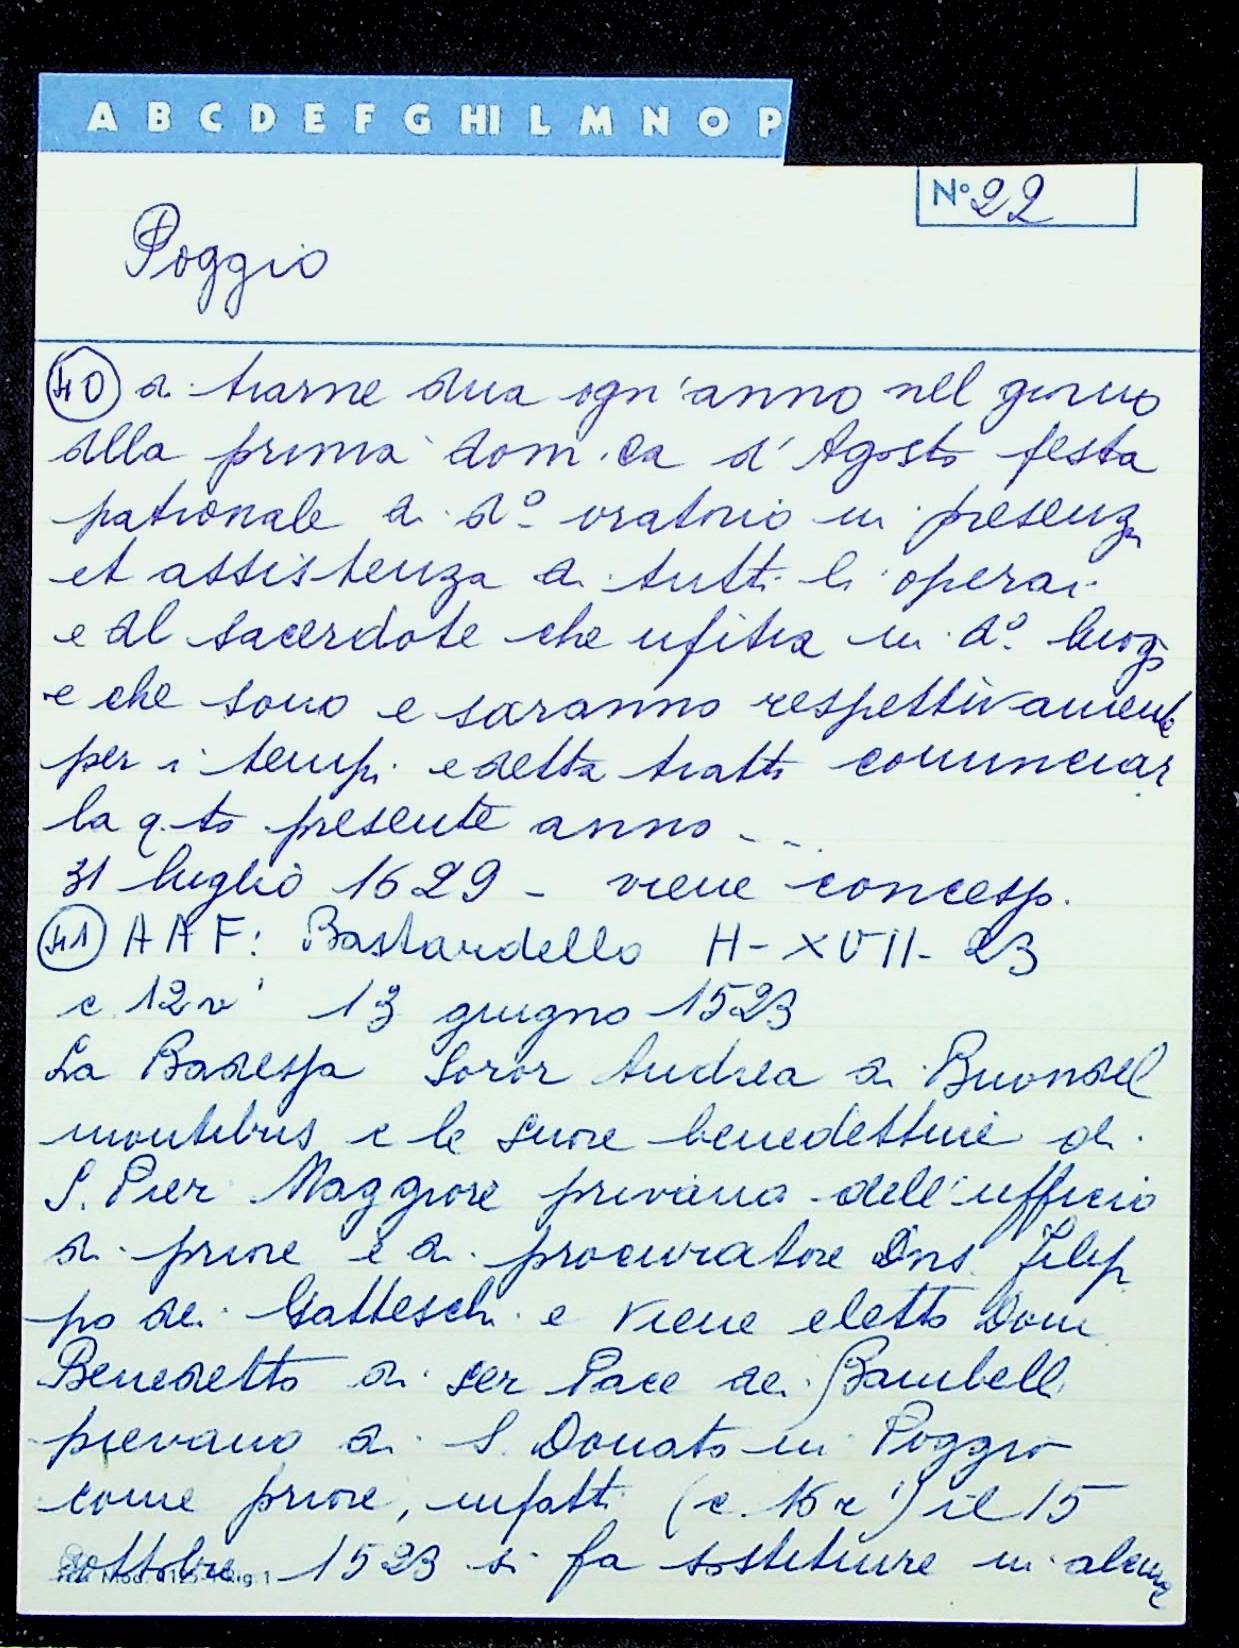 A B C D E F G HI L M N O P
N° 22
Poggio
40 di trarne dua ogn'anno nel giorno
della prima dom.ca d'Agosto festa
patronale di d° oratorio in presenza
et assistenza di tutti li operai
e del sacerdote che ufitia in d° luogo
e che sono e saranno respettivamente
per i tempi e detta tratta cominciar
la q.to presente anno - - .
31 luglio 1629 - viene concesso.
41 A A F: Bastardello H - XVII - 23
c 12 v' 13 giugno 1523
La Badessa Soror Andrea di Buondel
montibus e le suore benedettine di
S. Pier Maggiore privano dell'ufficio
di priore e di procuratore Dns. Filip
po dei Gatteschi e viene eletto Dom
Benedetto di ser Pace dei Bambelli
pievano di S. Donato in Poggio
come priore, infatti (c. 16 r') il 15
ottobre 1523 si fa sostituire in alcuna